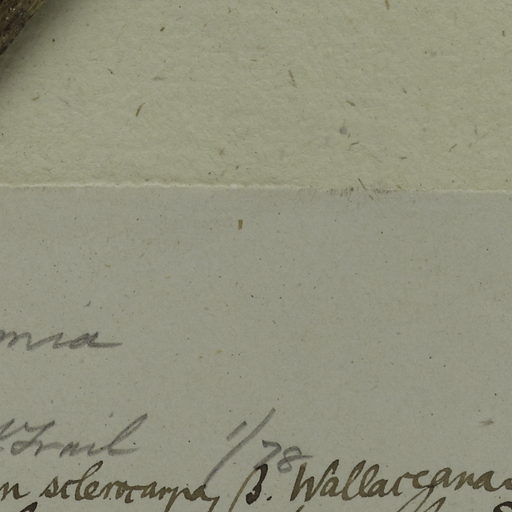 mia
Trail 1/78
n sclerocarpa, β. Wallaceana